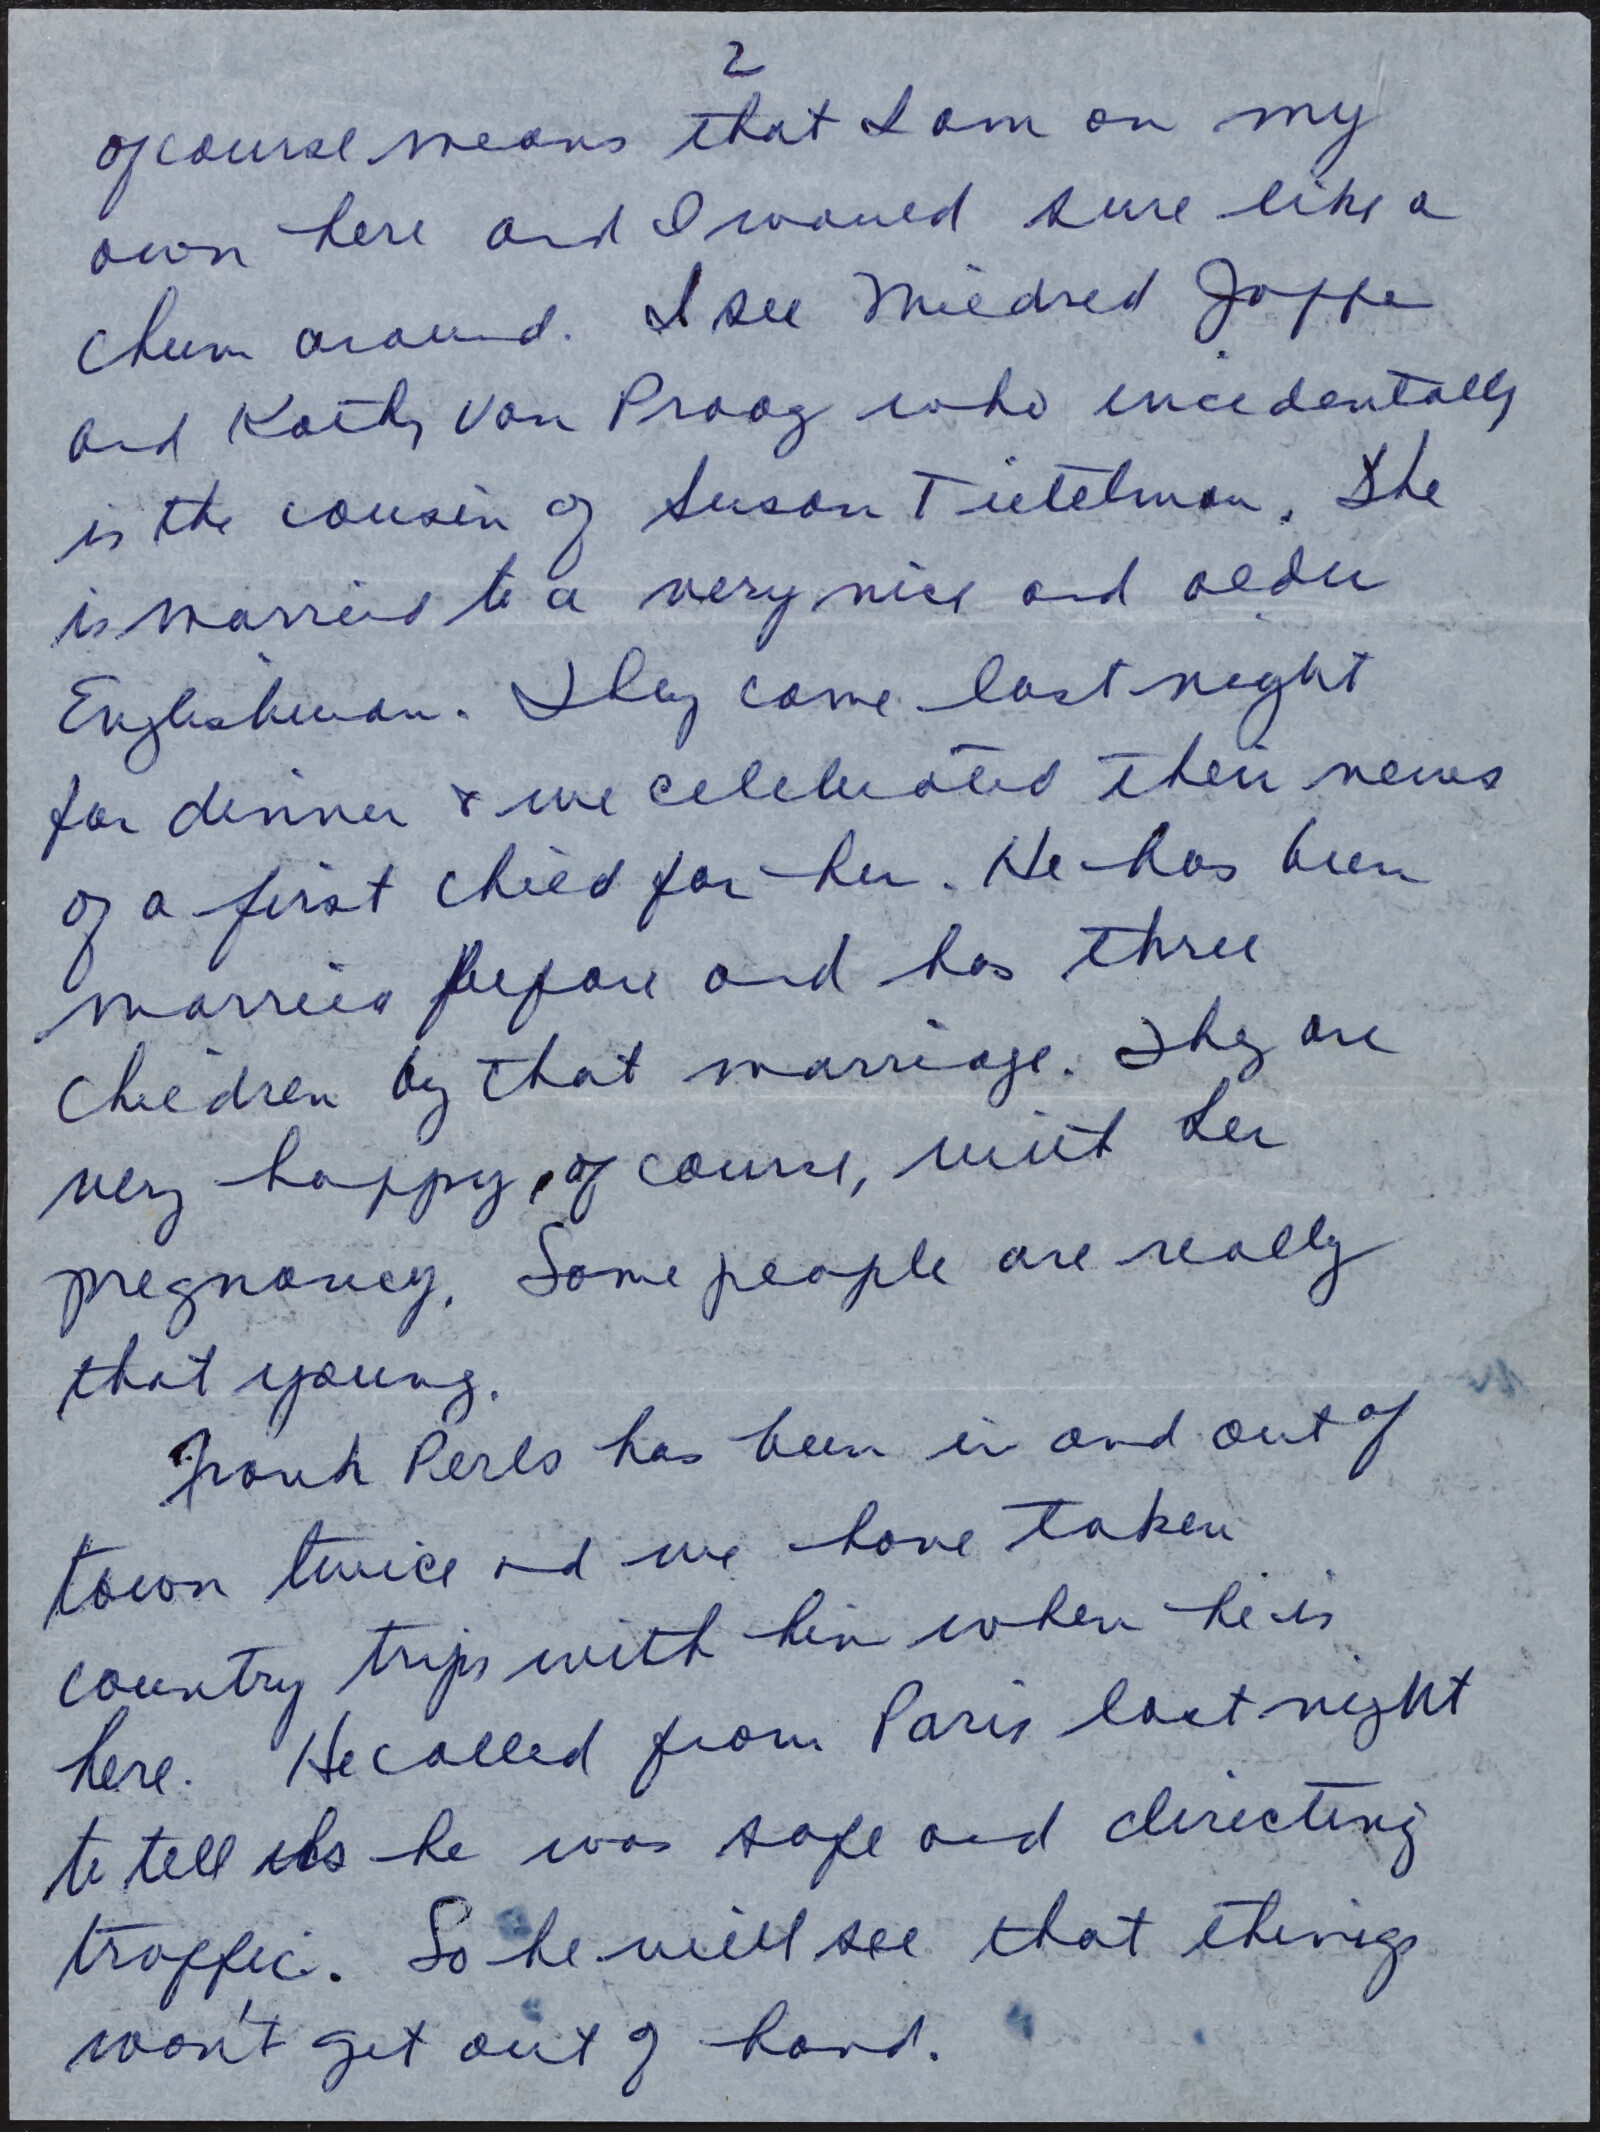 2
of course means that I am on my
own here and I would sure like a
chum around. I see Mildred Jaffe
and Kathy Van Praag who incidentally
is the cousin of Susan Tietelman. She
is married to a very nice and older
Englishman. They came last night
for dinner & we celebrated their news
of a first child for her. He has been
married before and has three
children by that marriage. They are
very happy, of course, with her
pregnancy. Some people are really
that young.
Frank Perls has been in and out of
town twice and we have taken
country trips with him when he is
here. He called from Paris last night
to tell us he was safe and directing
traffic. So he will see that things
won't get out of hand.